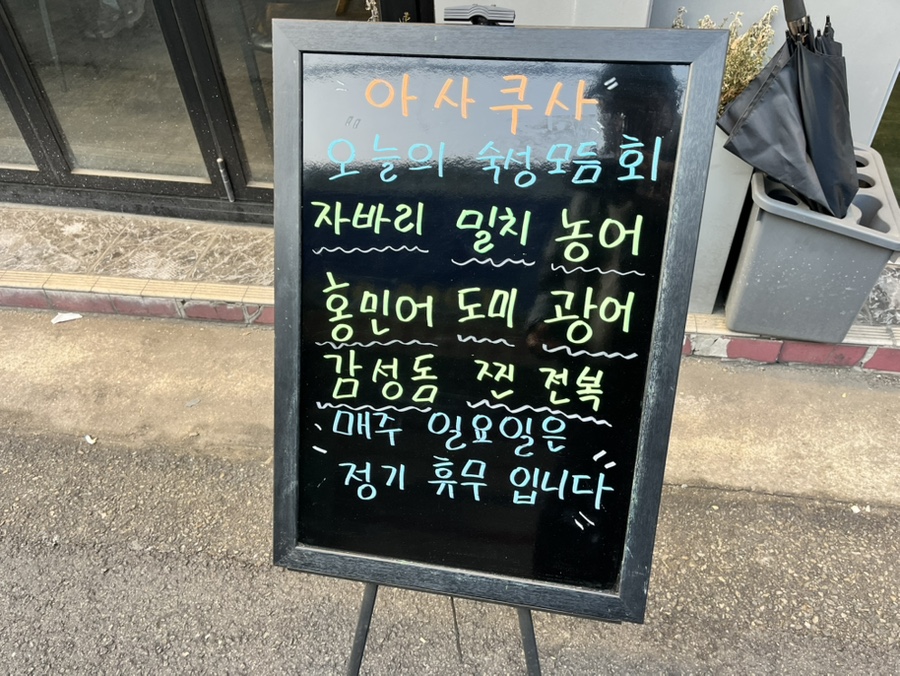 아사쿠사
오늘의 숙성모듬회
자바리 밀치 농어
홍민어 도미 광어
감성돔 찐 전복
매주 일요일은
정기 휴무 입니다